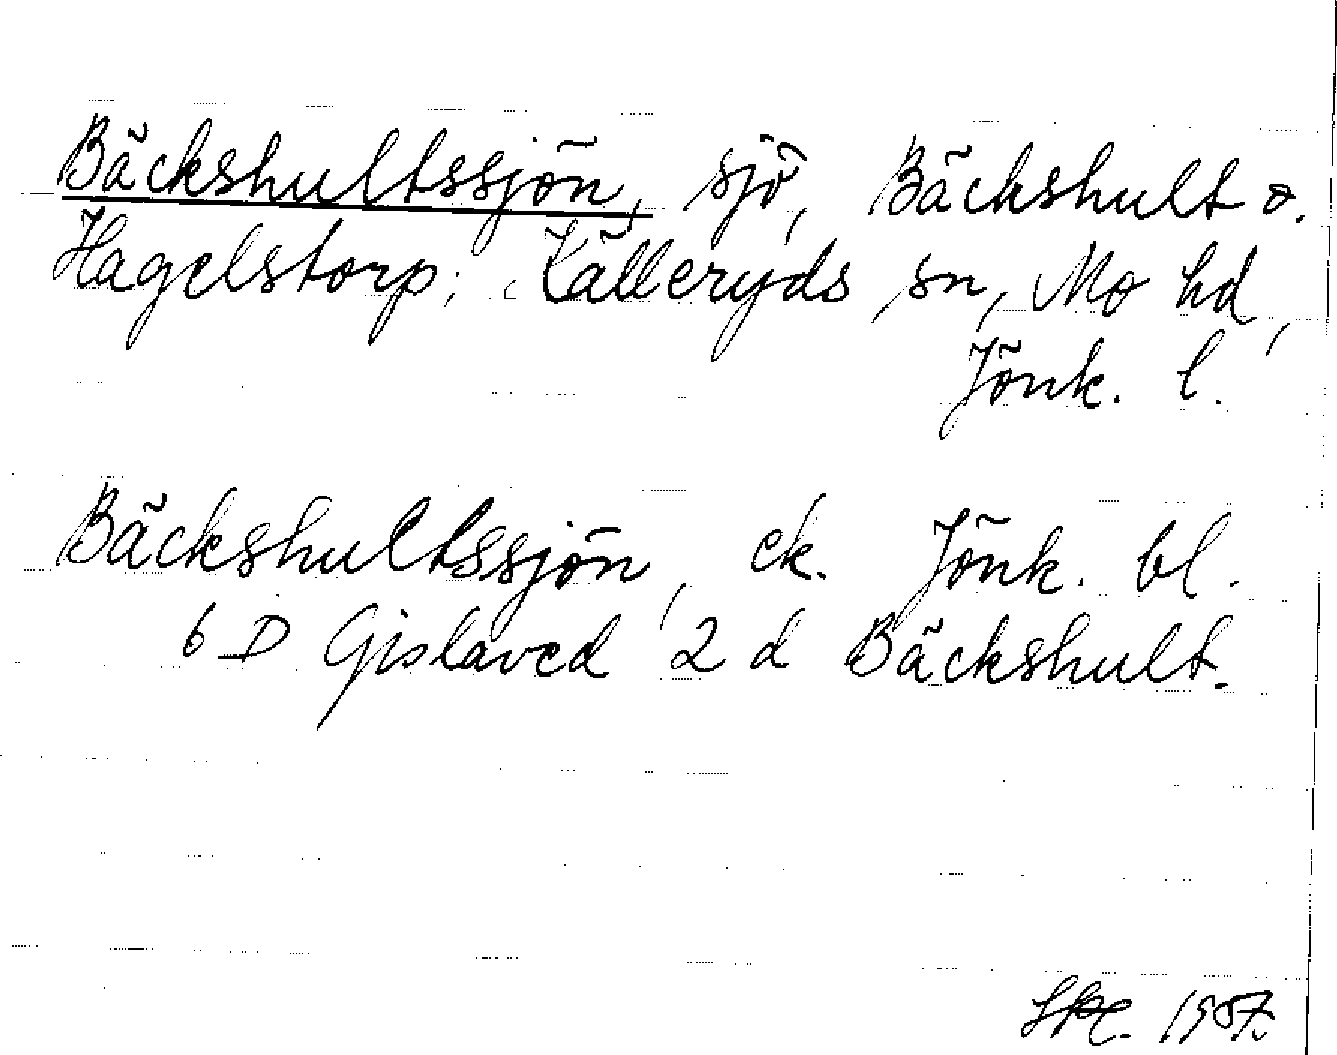 Bäckshultssjön, sjö, Bäckshult o.
Hagelstorp; Källeryds sn, Mo hd,
Jönk. l.
Bäckshultssjön, ek. Jönk. bl.
6 D Gislaved 2 d Bäckshult.